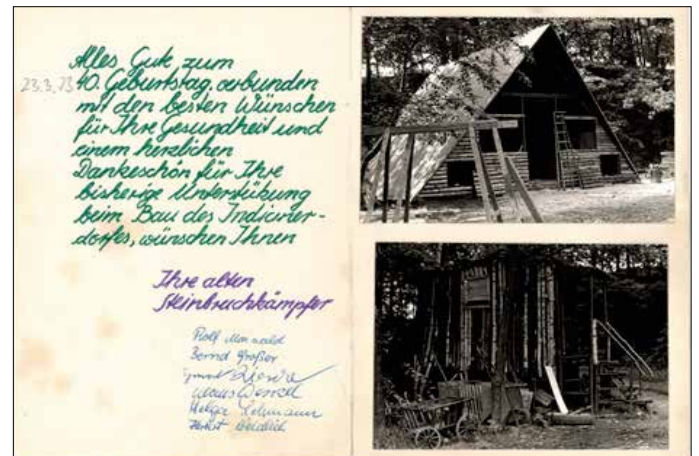 Alles Gute zum
23.3.73 40. Geburtstag, verbunden
mit den besten Wünschen
für Ihre Gesundheit und
einem herzlichen
Dankeschön für Ihre
bisherige Unterstützung
beim Bau des Indianer-
dorfes, wünschen Ihnen
Ihre alten
Steinbruchkämpfer
Rolf
Bernd Großer
Klaus Wenzel
Helga Lehmann
Herbst Weidlich